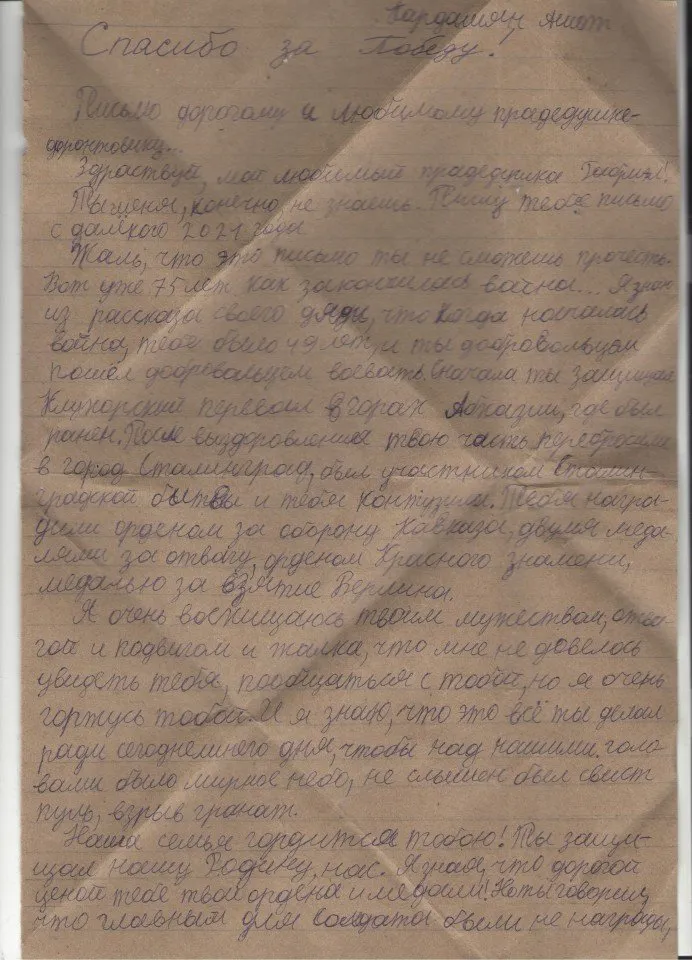 Кардамян Ашот
Спасибо за Победу!
Письмо дорогому и любимому прадедушке-
фронтовику...
Здраствуй, мой любимый прадедушка Габриэл!
Ты меня, конечно, не знаешь. Пишу тебе письмо
с далёкого 2021 года
Жаль, что это письмо ты не сможешь прочесть.
Вот уже 75 лет как закончилась война... Я знаю
из рассказа своего дяди, что когда началась
война, тебе было 49 лет, и ты добровольцем
пошел добровальцем воевать. Сначала ты защищал
Клухорский перевал в горах Абхазии, где был
ранен. После выздоровления твою часть перебросили
в город Сталинград, был участником Сталин-
градской битвы и тебя контузили. Тебя награ-
дили орденом за оборону Кавказа, двумя меда-
лями за отвагу, орденом Красного знамени,
медалью за взятие Берлина.
Я очень восхищаюсь твоим мужеством, отва-
гой и подвигом и жалка, что мне не довелось
увидеть тебя, пообщаться с тобой, но я очень
горжусь тобой. И я знаю, что это всё ты делал
ради сегоднешнего дня, чтобы над нашими голо-
вами было мирное небо, не слышен был свист
пуль, взрыв гранат.
Наша семья гордится тобою! Ты защи-
щал нашу Родину, нас. Я знаю, что дорогой
ценой тебе твои ордена и медали! Но ты говорил,
что главным для солдата были не награды,